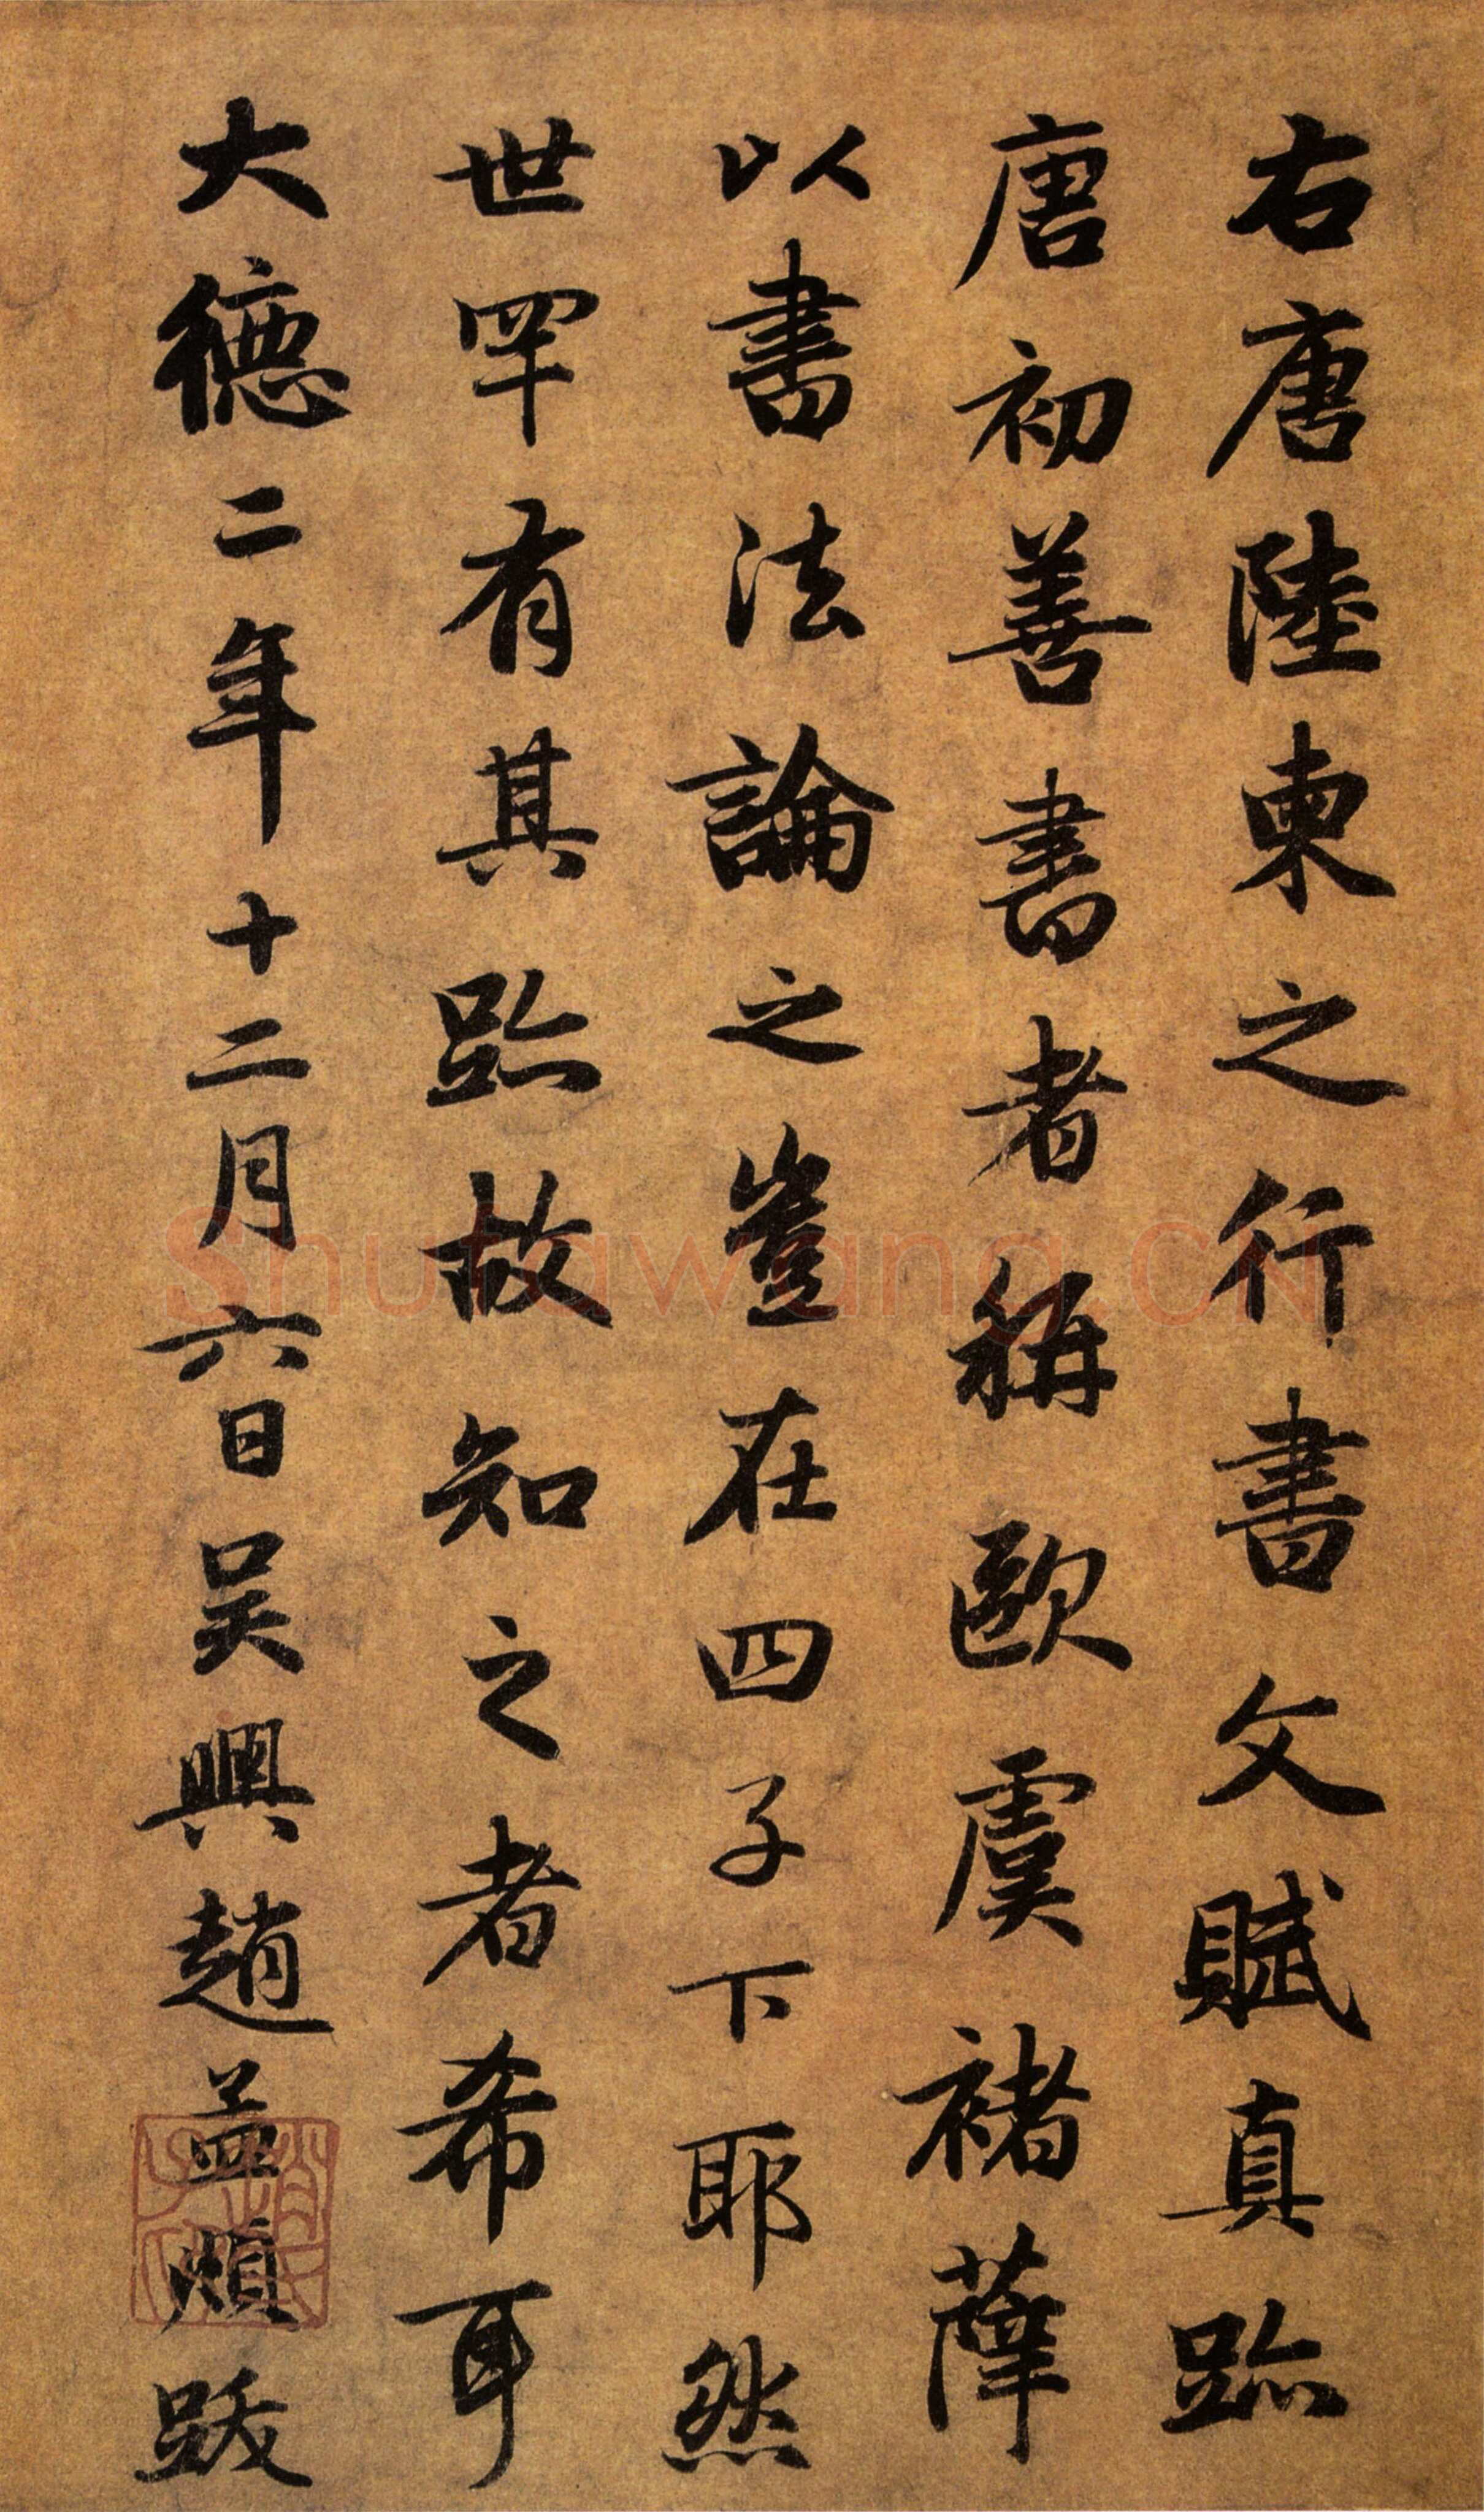 右唐陸柬之行書文賦真跡
唐初善書者稱歐虞褚薛
以書法論之豈在四子下耶然
世罕有其跡故知之者希耳
大德二年十二月六日吳興趙孟頫跋
趙氏子昂
shufawang.cn